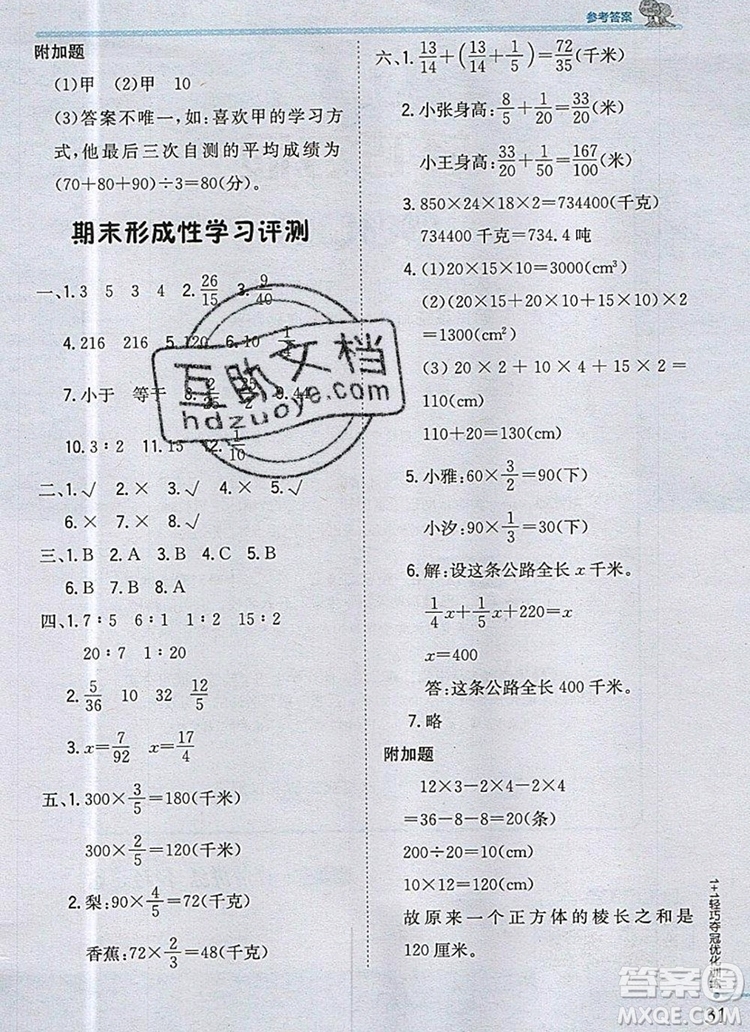 参考答案
附加题
(1)甲 (2)甲 10
(3)答案不唯一,如:喜欢甲的学习方
式,他最后三次自测的平均成绩为
(70+80+90)÷3=80(分)。
期末形成性学习评测
一、1.3 5 3 4 2.26/15 3.9/40
4.216 216 5.120 6.10 1/4
7.小于 等于 8.2/25 2 9.44
10.3∶2 11.15 12.1/10
二、1.√ 2.× 3.√ 4.× 5.×
6.× 7.× 8.√
三、1.B 2.A 3.A 4.C 5.B
6.B 7.B 8.A
四、1.7∶5 6∶1 1∶2 15∶2
20∶7 2∶1
2.5/36 10 32 12/5
3.x=7/92 x=174/4
五、1.300×3/5=180(千米)
300×2/5=120(千米)
2.梨:90×4/5=72(千克)
香蕉:72×2/3=48(千克)
六、1.13/14+(13/14+1/5)=72/35(千米)
2.小张身高:8/5+1/20=33/20(米)
小王身高:33/20+1/50=167/100(米)
3.850×24×18×2=734400(千克)
734400千克=734.4吨
4.(1)20×15×10=3000(cm³)
(2)(20×15+20×10+15×10)×2
=1300(cm²)
(3)20×2+10×4+15×2=
110(cm)
110+20=130(cm)
5.小雅:60×3/2=90(下)
小汐:90×1/3=30(下)
6.解:设这条公路全长x千米。
1/4x+1/5x+220=x
x=400
答:这条公路全长400千米。
7.略
附加题
12×3-2×4-2×4
=36-8-8=20(条)
200÷20=10(cm)
10×12=120(cm)
故原来一个正方体的棱长之和是
120厘米。
1+1轻巧夺冠优化训练
31
互助文档
hdzuoye.com
答案圈
MXQE.COM